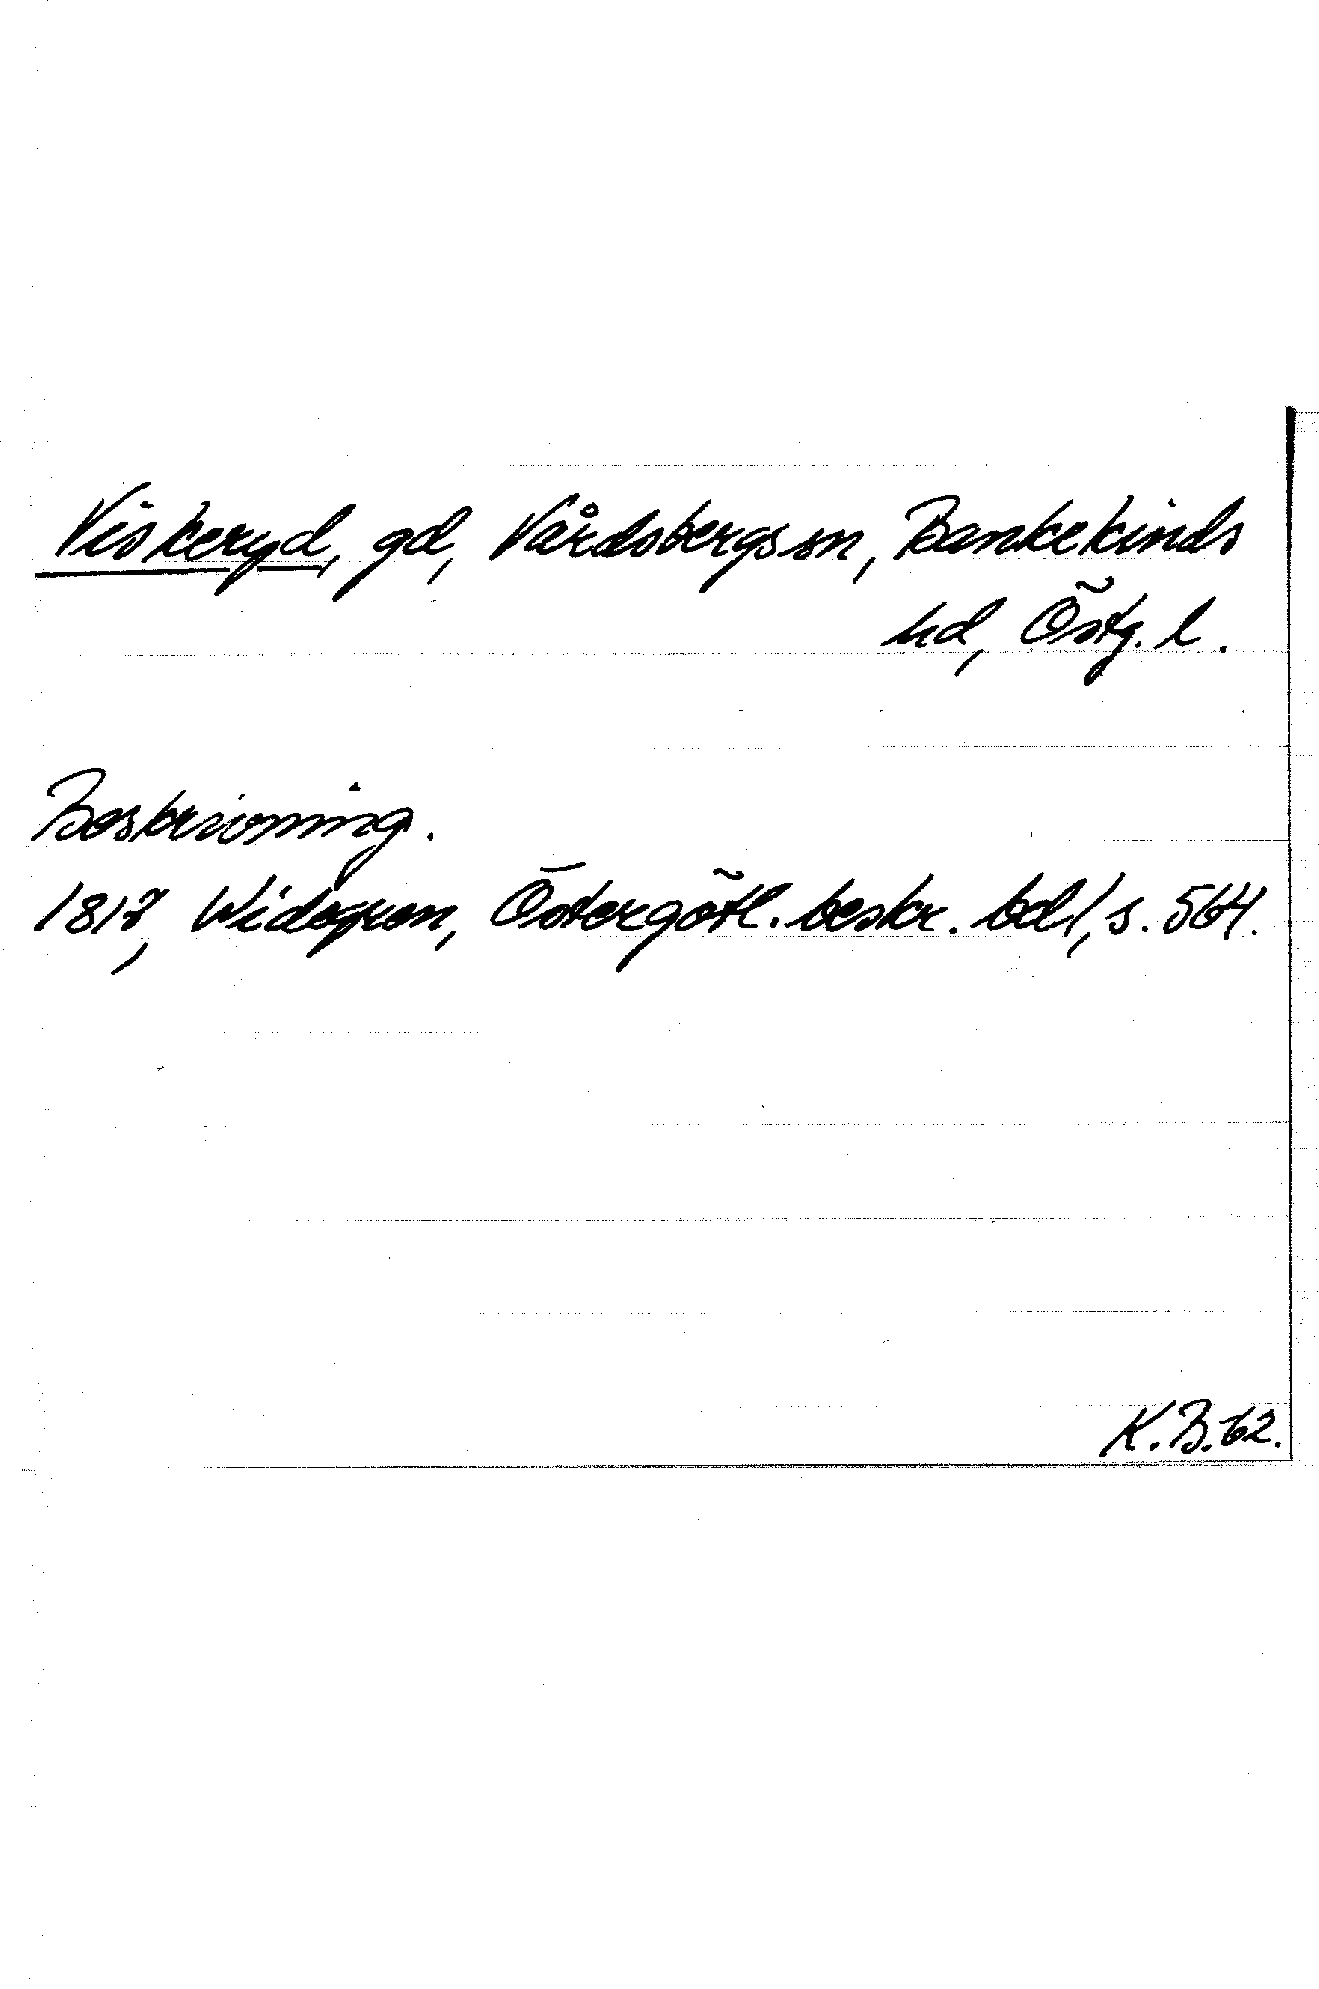 Viskeryd, gd, Vårdsbergs sn, Bankekinds
hd, Östg. l.
Beskrivning.
1817, Widegren, Östergötl. beskr. bd 1, s. 564.
K.B. 62.